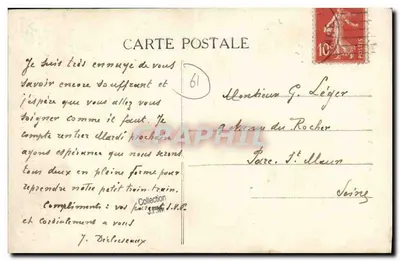 CARTE POSTALE
10c
61
Je suis très ennuyé de vous
savoir encore souffrant et
j'espère que vous allez vous
soigner comme il faut. Je
compte rentrer Mardi prochain
ayons espérance que nous serons
tous deux en pleine forme pour
reprendre notre petit train-train.
Compliments à vos parents S.V.P.
et cordialement à vous
J.
Monsieur G. Léger
du Rocher
Parc St Maur
Seine
Collection